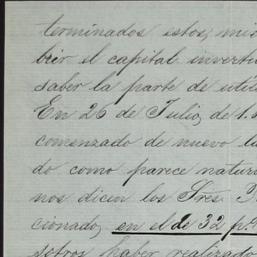 terminados estos, mis
bir el capital inverti
saber la parte de util
En 26 de Julio, de 1.
comenzado de nuevo la
do como parece natura
nos dicen los Sres.
cionado, en el de 32 p.%
sotros haber realizado